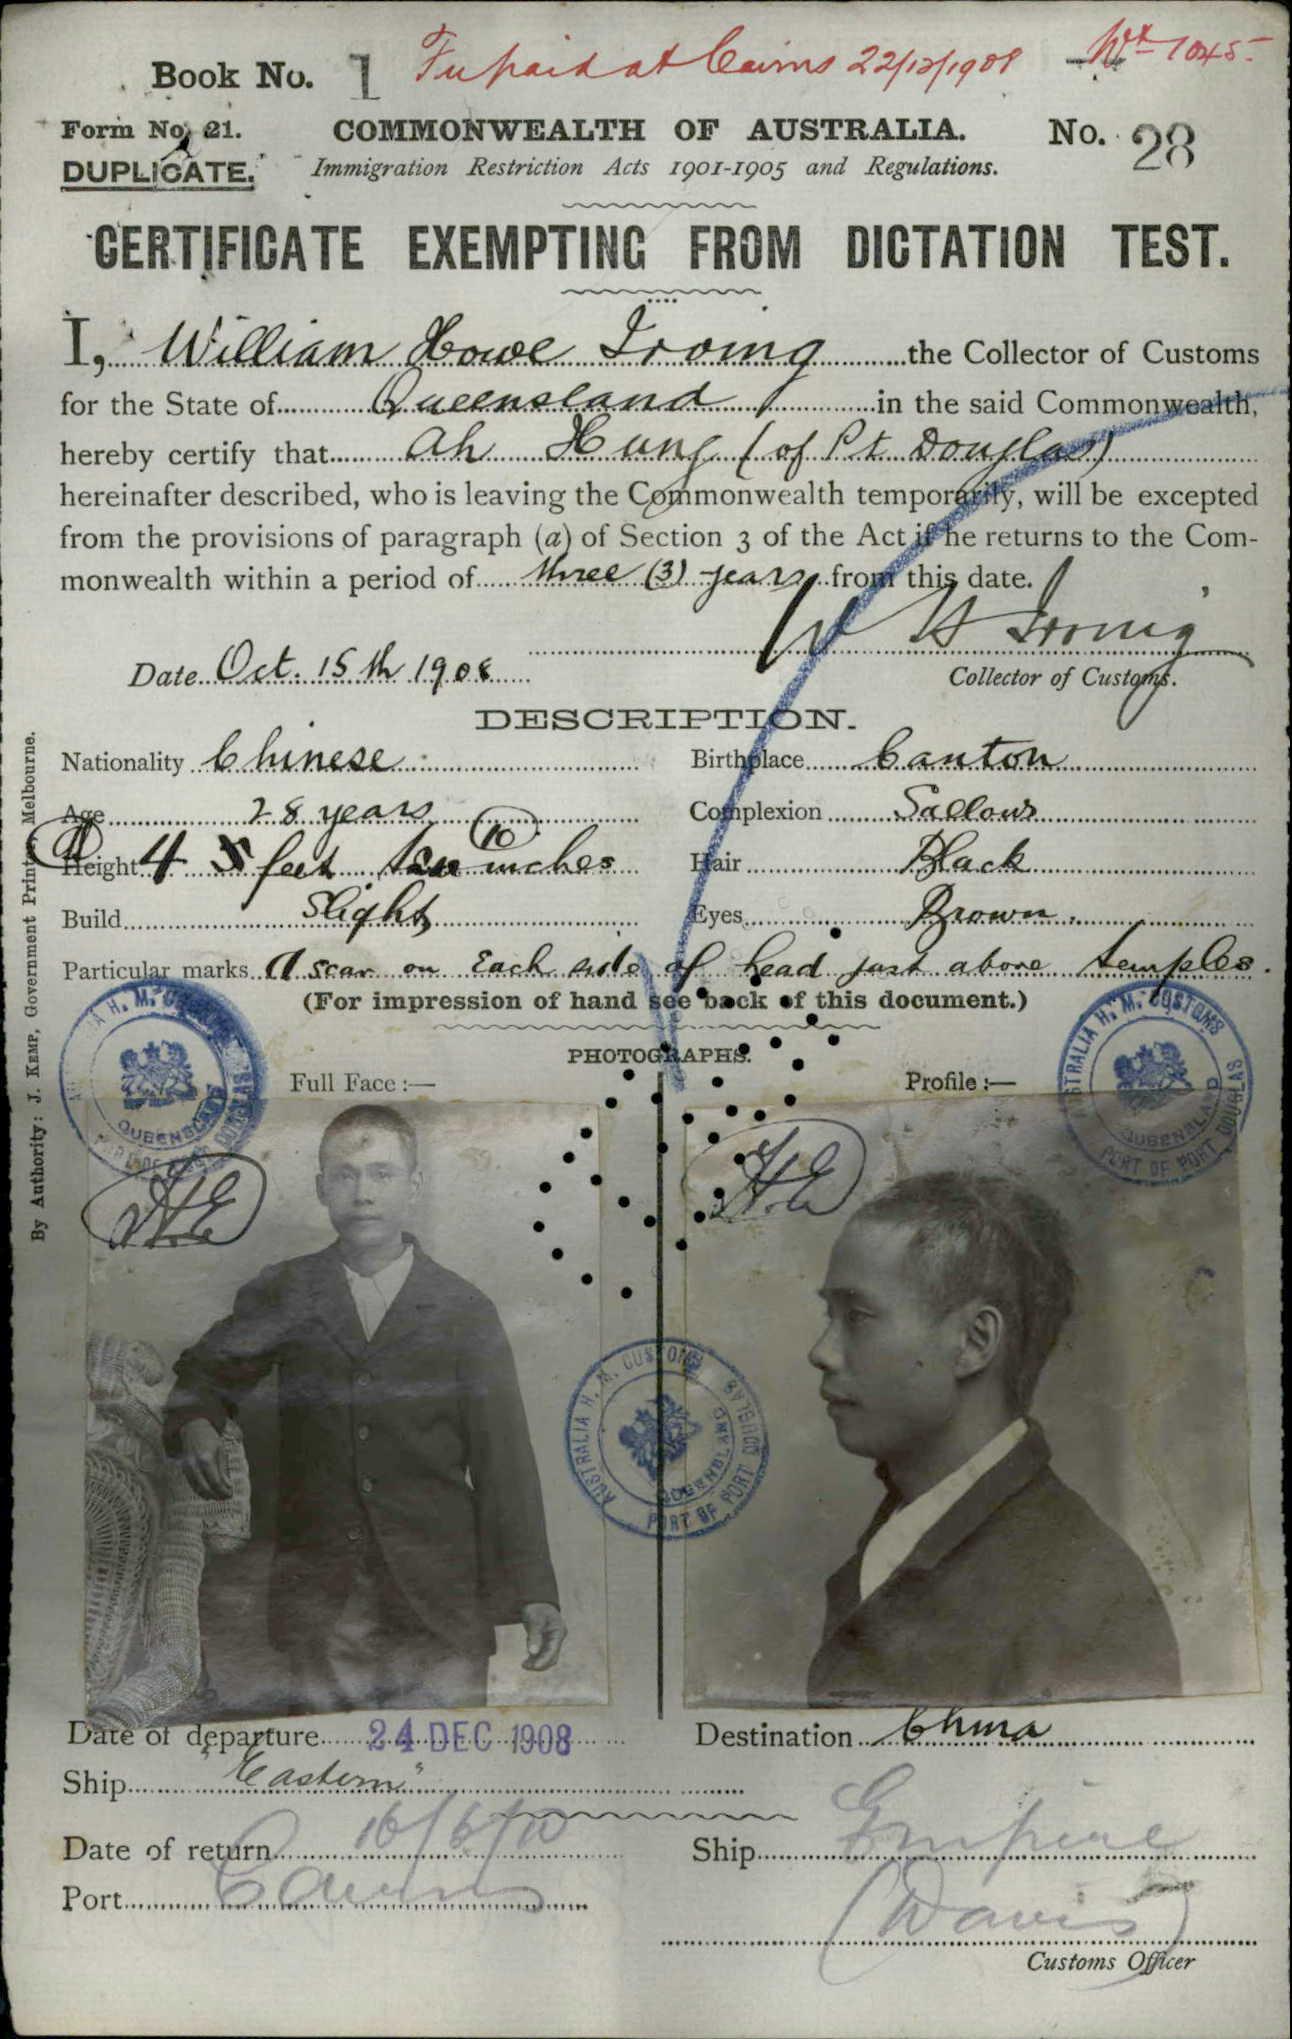 Book No. 1 Fee paid at Cairns 22/12/1908 Wt 1045
Form No. 21. COMMONWEALTH OF AUSTRALIA. No. 28
DUPLICATE. Immigration Restriction Acts 1901-1905 and Regulations.
CERTIFICATE EXEMPTING FROM DICTATION TEST.
I, William Howe Irving the Collector of Customs
for the State of Queensland in the said Commonwealth,
hereby certify that Ah Hung (of Pt Douglas)
hereinafter described, who is leaving the Commonwealth temporarily, will be excepted
from the provisions of paragraph (a) of Section 3 of the Act if he returns to the Com-
monwealth within a period of three (3) years from this date.
W H Irving
Date Oct. 15th 1908 Collector of Customs.
DESCRIPTION.
Nationality Chinese Birthplace Canton
Age 28 years Complexion Sallow
Height 4 5 feet ten (10) inches Hair Black
Build Slight Eyes Brown.
Particular marks A scar on Each side of head just above temples.
(For impression of hand see back of this document.)
PHOTOGRAPHS.
Full Face :— Profile :—
AUSTRALIA H. M. CUSTOMS QUEENSLAND PORT OF PORT DOUGLAS
AUSTRALIA H. M. CUSTOMS QUEENSLAND PORT OF PORT DOUGLAS
H.E H.E
AUSTRALIA H. M. CUSTOMS QUEENSLAND PORT OF PORT DOUGLAS
Date of departure 24 DEC 1908 Destination China
Ship "Eastern"
Date of return 16/6/10 Ship Empire
Port Cairns (Davis)
Customs Officer
By Authority: J. KEMP, Government Printer, Melbourne.